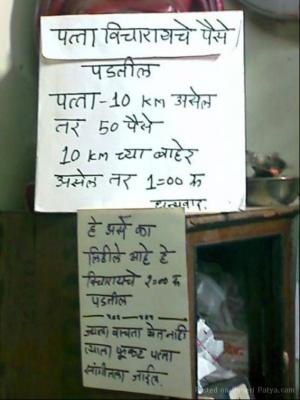 पत्ता विचारायचे पैसे
पडतील
पत्ता - 10 KM असेल
तर 50 पैसे
10 KM च्या बाहेर
असेल तर 1=00 रू
धन्यवाद
हे असे का
लिहीले आहे हे
विचारायचे 2=00 रू
पडतील
ज्याला वाचता येत नाही
त्याला फुकट पत्ता
सांगीतला जाईल.
Posted on: Patya.com